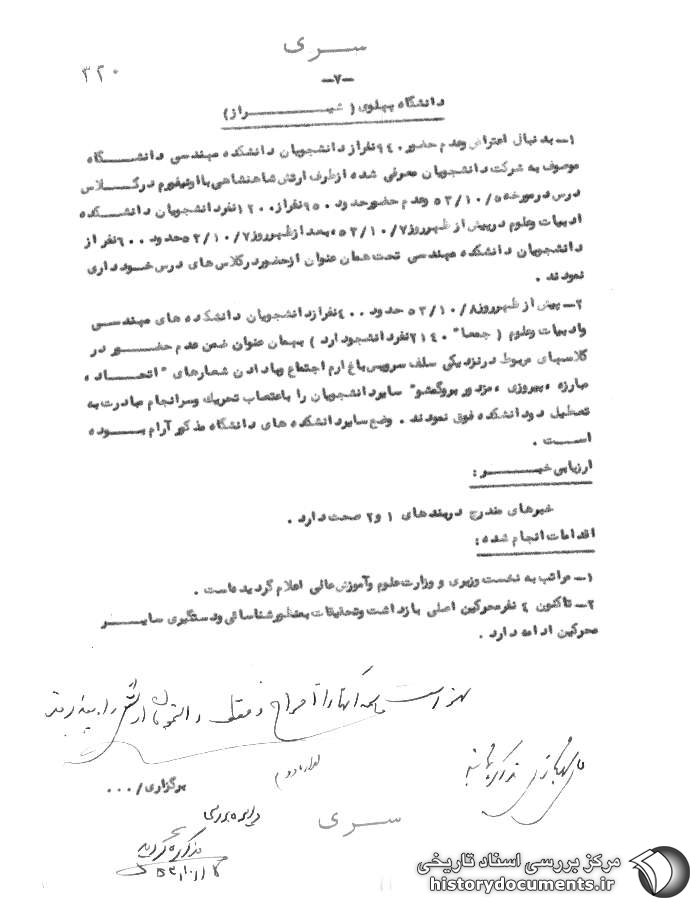 سری
۳۲۰
-۷-
دانشگاه پهلوی ( شیراز )
۱- به دنبال اعتراض وعدم حضور ۹۴۰ نفر از دانشجویان دانشکده مهندسی دانشگاه
موصوف به شرکت دانشجویان معرفی شده از طرف ارتش شاهنشاهی با اونیفورم در کلاس
درس در مورخه ۵۳/۱۰/۵ وعدم حضور حدود ۹۵۰ نفر از ۱۲۰۰ نفر دانشجویان دانشکده
ادبیات وعلوم در پیش از ظهر روز ۵۳/۱۰/۷، بعد از ظهر روز ۵۳/۱۰/۷ حدود ۶۰۰ نفر از
دانشجویان دانشکده مهندسی تحت همان عنوان از حضور در کلاس های درس خودداری
نمودند .
۲- پیش از ظهر روز ۵۳/۱۰/۸ حدود ۴۰۰ نفر از دانشجویان دانشکده های مهندسی
وادبیات وعلوم ( جمعا" ۲۱۴۰ نفر دانشجو دارد ) بهمان عنوان ضمن عدم حضور در
کلاسهای مربوط در نزدیکی سلف سرویس باغ ارم اجتماع و با دادن شعارهای " اتحاد ،
مبارزه ، پیروزی ، مزدور بروگمشو" سایر دانشجویان را با عتصاب تحریک وسرانجام مبادرت به
تعطیل دو دانشکده فوق نمودند . وضع سایر دانشکده های دانشگاه مذکور آرام بوده
است .
ارزیابی خبر :
خبرهای مندرج در بندهای ۱ و ۲ صحت دارد .
اقدامات انجام شده :
۱- مراتب به نخست وزیری و وزارت علوم وآموزش عالی اعلام گردیده است .
۲- تاکنون ۴ نفر محرکین اصلی بازداشت وتحقیقات بمنظور شناسائی ودستگیری سایر
محرکین ادامه دارد .
بهتر است همه آنها را اخراج و فقط دانشجویان ارتش را بپذیرند
برگزاری / ۰۰۰
سری
مرکز بررسی اسناد تاریخی
historydocuments.ir